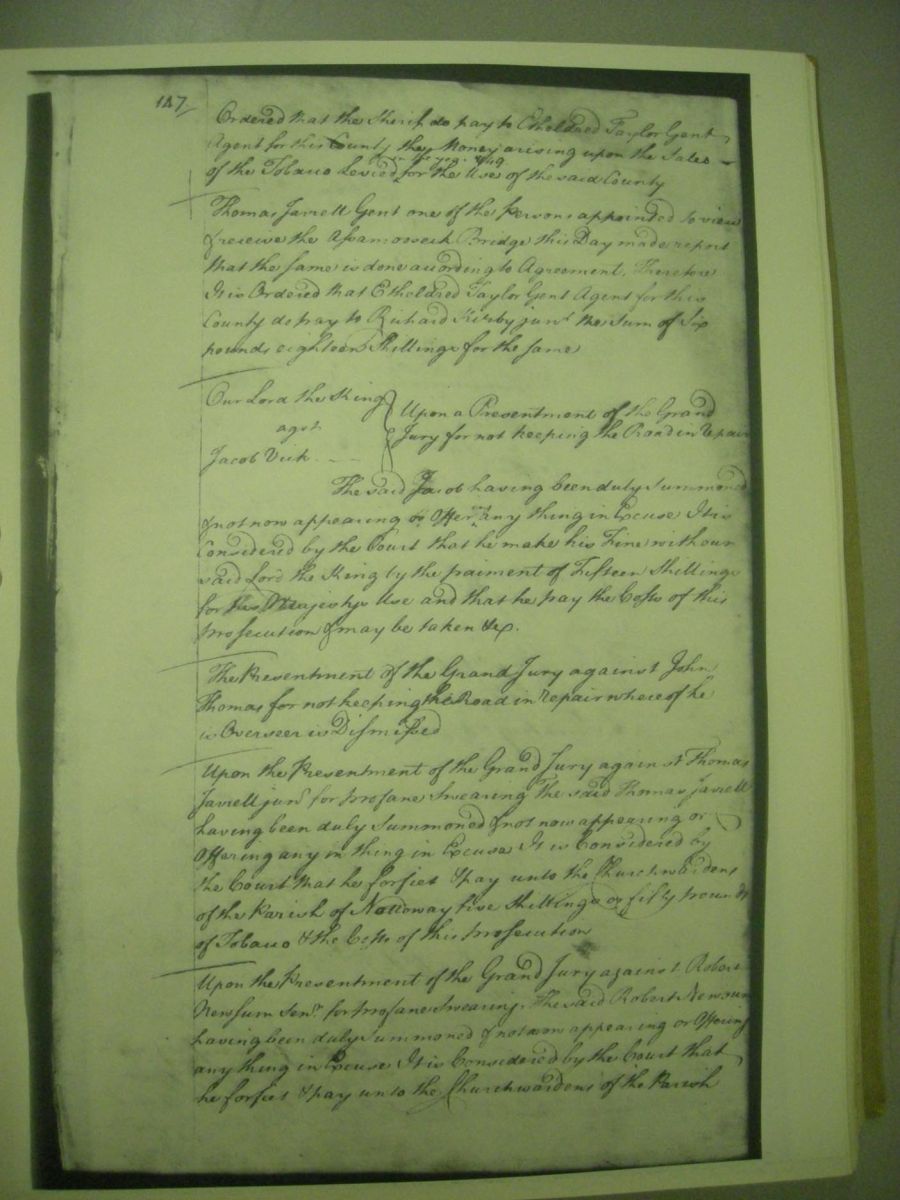 147
Ordered that the Sherif do pay to Etheldred Taylor Gent
Agent for this County the Money arising upon the Sales
in the year 1749
of the Tobacco Levied for the Use of the said County
Thomas Jarrell Gent one of the Persons appointed to view
& receive the Assamoosack Bridge this Day made report
that the same is done according to Agreement. Therefore
It is Ordered that Etheldred Taylor Gent Agent for this
County do pay to Richard Kirby junr. the Sum of Six
pounds eighteen Shillings for the same
Our Lord the King
agst.
Jacob Vick
Upon a Presentment of the Grand
Jury for not keeping the Road in repair
The said Jacob having been duly Summoned
& not now appearing or Offering any thing in Excuse It is
Considered by the Court that he make his Fine with our
said Lord the King by the paiment of Fifteen Shillings
for his Majestys Use and that he pay the Costs of this
prosecution & may be taken &c.
The Presentment of the Grand Jury against John
Thomas for not keeping the Road in repair whereof he
is Overseer is Dismissed
Upon the Presentment of the Grand Jury against Thomas
Jarrell junr. for profane Swearing The said Thomas Jarrell
having been duly Summoned & not now appearing or
Offering any in thing in Excuse It is Considered by
the Court that he forfiet & pay unto the Churchwardens
of the Parish of Nottoway five Shillings or fifty pounds
of Tobacco & the Costs of this prosecution
Upon the Presentment of the Grand Jury against Robert
Newsum Senr. for profane Swearing. The said Robert Newsum
having been duly Summoned & not now appearing or Offering
any thing in Excuse It is Considered by the Court that
he forfiet & pay unto the Churchwardens of the Parish